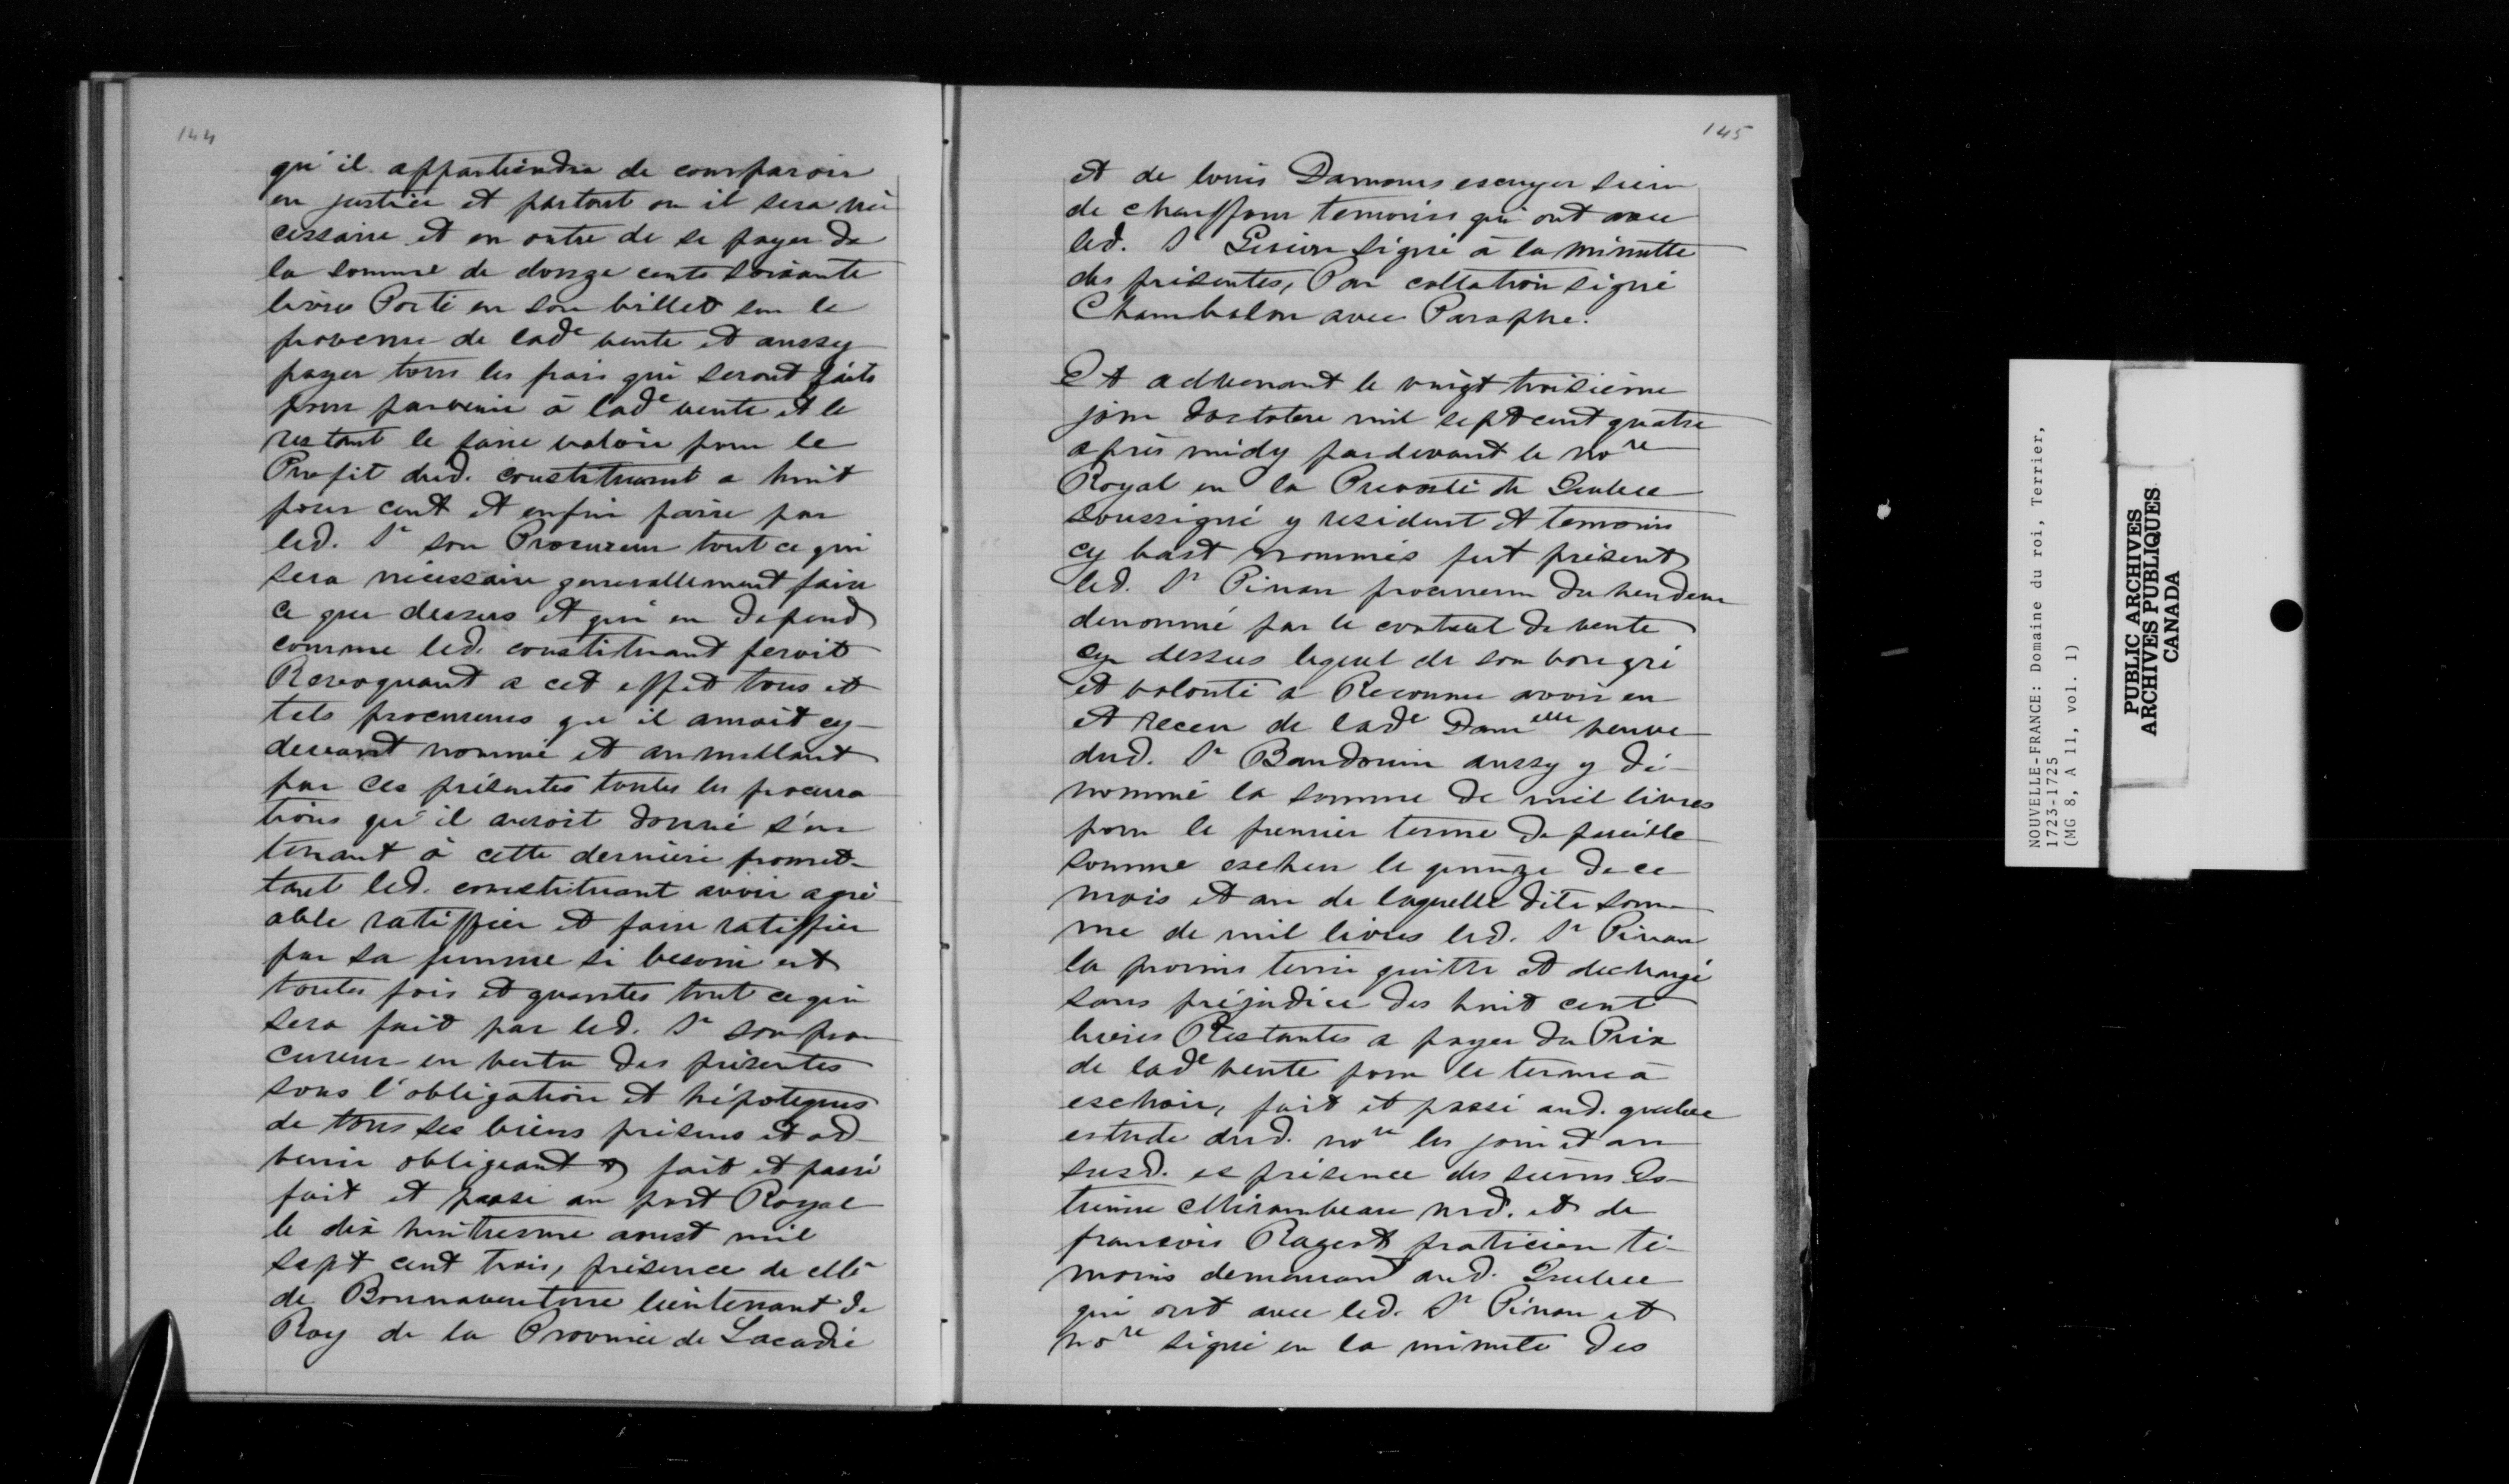 144
qu'il appartiendra de comparoir
en justice et partout ou il sera né
cessaire et en outre de se payer de
la somme de douze cents soixante
livres Porté en son billet sur le
provenu de lad^e vente et aussy
payer tous les frais qui seront faits
pour parvenir à lad^e vente et le
restant le faire valoir pour le
Profit dud. constituant a huit
pour cent et enfin faire par
led. S^r son Procureur tout ce qui
sera nécessaire generallement faire
ce que dessus et qui en depend
comme led. constituant feroit
Revoquant a cet effet tous et
tels procureurs qu'il auroit cy-
devant nommé et annullant
par ces présentes toutes les procura
tions qu'il auroit donné s'en
tenant à cette dernière promet-
tant led. constituant avoir agré
able ratiffier et faire ratiffier
par sa femme si besoin est
toutes fois et quantes tout ce qui
sera fait par led. S^r son pro
cureur en vertu des présentes
sous l'obligation et hépoteques
de tous ses biens présens et ad
venir obligeant fait et passé
fait et passé au port Royal
le dix huitiesme aoust mil
sept cent trois, présence de
de Bonnaventure lieutenant de
Roy de la Province de Lacadie
145
et de louis Damours escuyer sieur
de chauffour temoins qui ont avec
led. S^r signé à la minutte
des présentes, Par collation signé
Chambalon avec Paraphe.
Et advenant le vingt troisième
jour doctobre mil sept cent quatre
après midy pardevant le no^re
Royal en la Prevosté de Quebec
soussigné y resident et temoins
cy bast nommés fut présent
led. S^r Pinau procureur du vendeur
denommé par le contract de vente
cy dessus lequel de son bon gré
et volonté a Reconnu avoir eu
et receu de lad^e Dam^elle veuve
dud. S^r Baudouin aussy y dé-
nommé la somme de mil livres
pour le premier terme de pareille
somme escheu le quinze de ce
mois et an de laquelle dite som-
me de mil livres led. S^r Pinau
la promis tenir quitte et dechargé
sans préjudice des huit cent
livres Restantes a payer du Prix
de lad^e vente pour le terme à
eschoir, fait et passé aud. quebec
estude dud. no^re les jour et an
susd. es présence des sieurs Es-
tienne Mirambeau md. et de
francois Rageot praticien té-
moins demeurant aud. Quebec
qui ont avec led. S^r Pinau et
no^re signé en la minute des
NOUVELLE-FRANCE: Domaine du roi, Terrier,
1723-1725
(MG 8, A 11, vol. 1)
PUBLIC ARCHIVES
ARCHIVES PUBLIQUES
CANADA